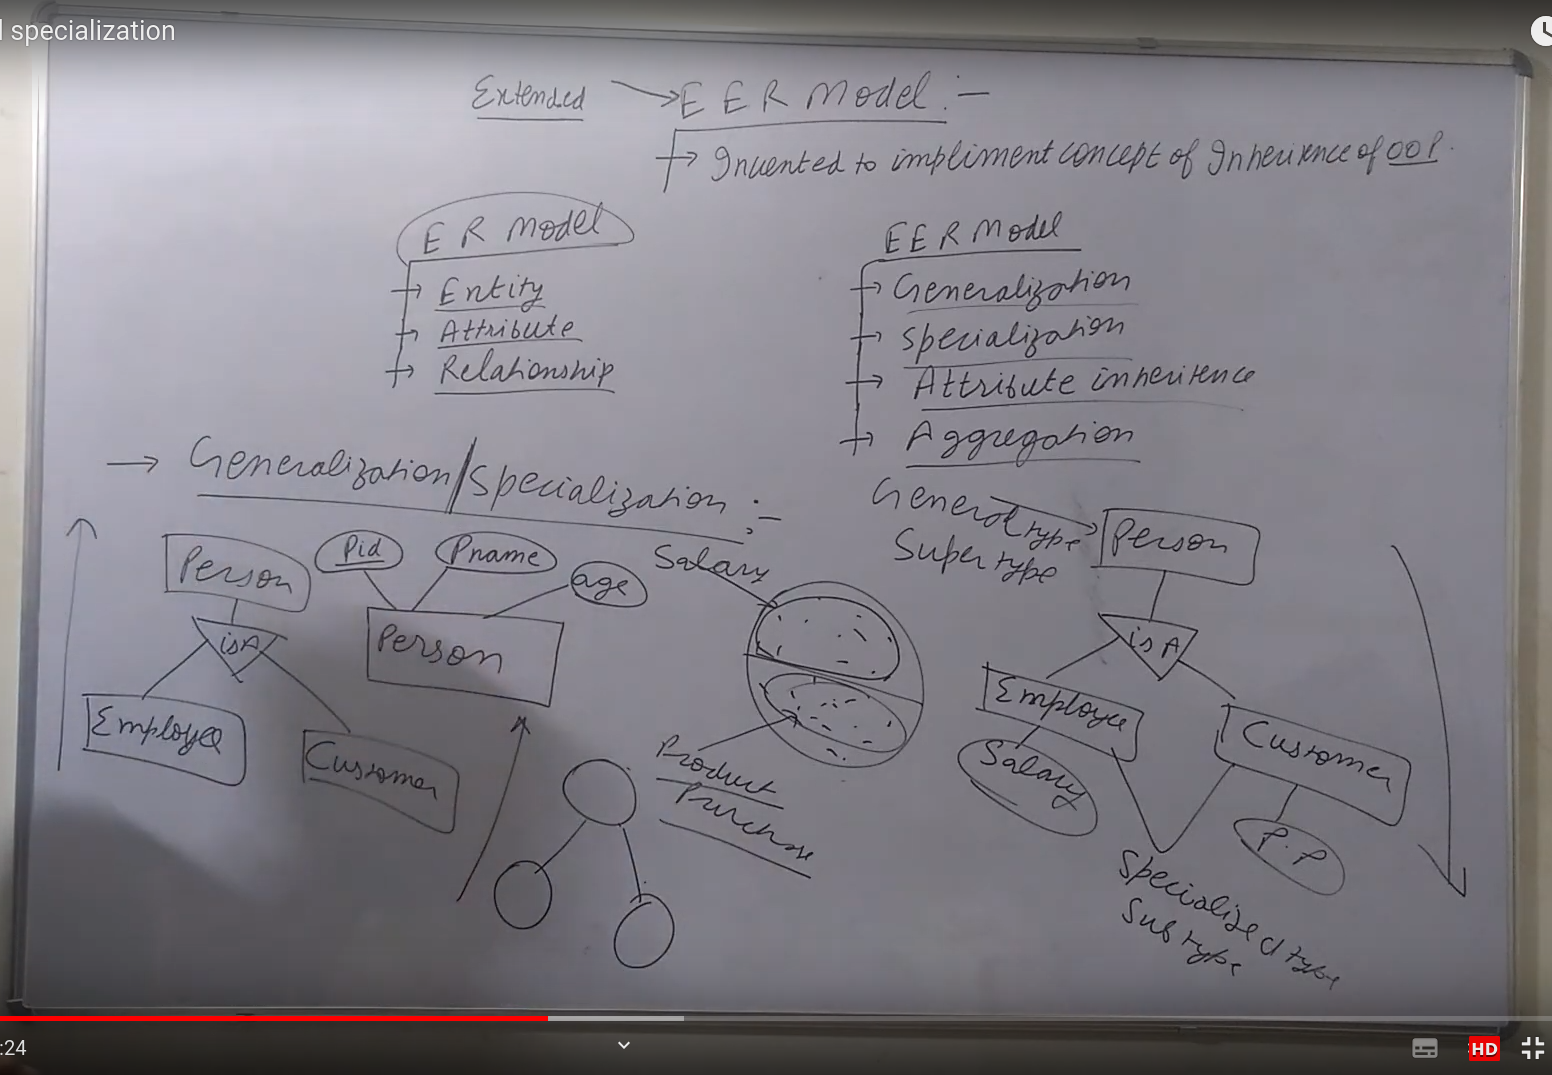 specialization
Extended → E E R Model :-
→ Invented to impliment concept of Inheritence of OOP.
E R Model
→ Entity
→ Attribute
→ Relationship
E E R Model
→ Generalization
→ Specialization
→ Attribute inheritence
→ Aggregation
→ Generalization/Specialization :-
Person
isA
Employee
Customer
Pid
Pname
age
Person
Salary
Product
Purchase
General type
Super type
Person
isA
Employee
Customer
Salary
P.P
Specialized type
Sub type
:24
HD